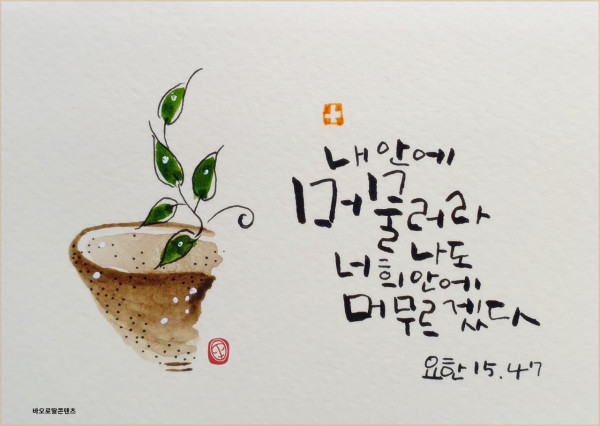 내 안에
머물러라
나도
너희 안에
머무르겠다
요한 15.4ㄱ
바오로딸콘텐츠